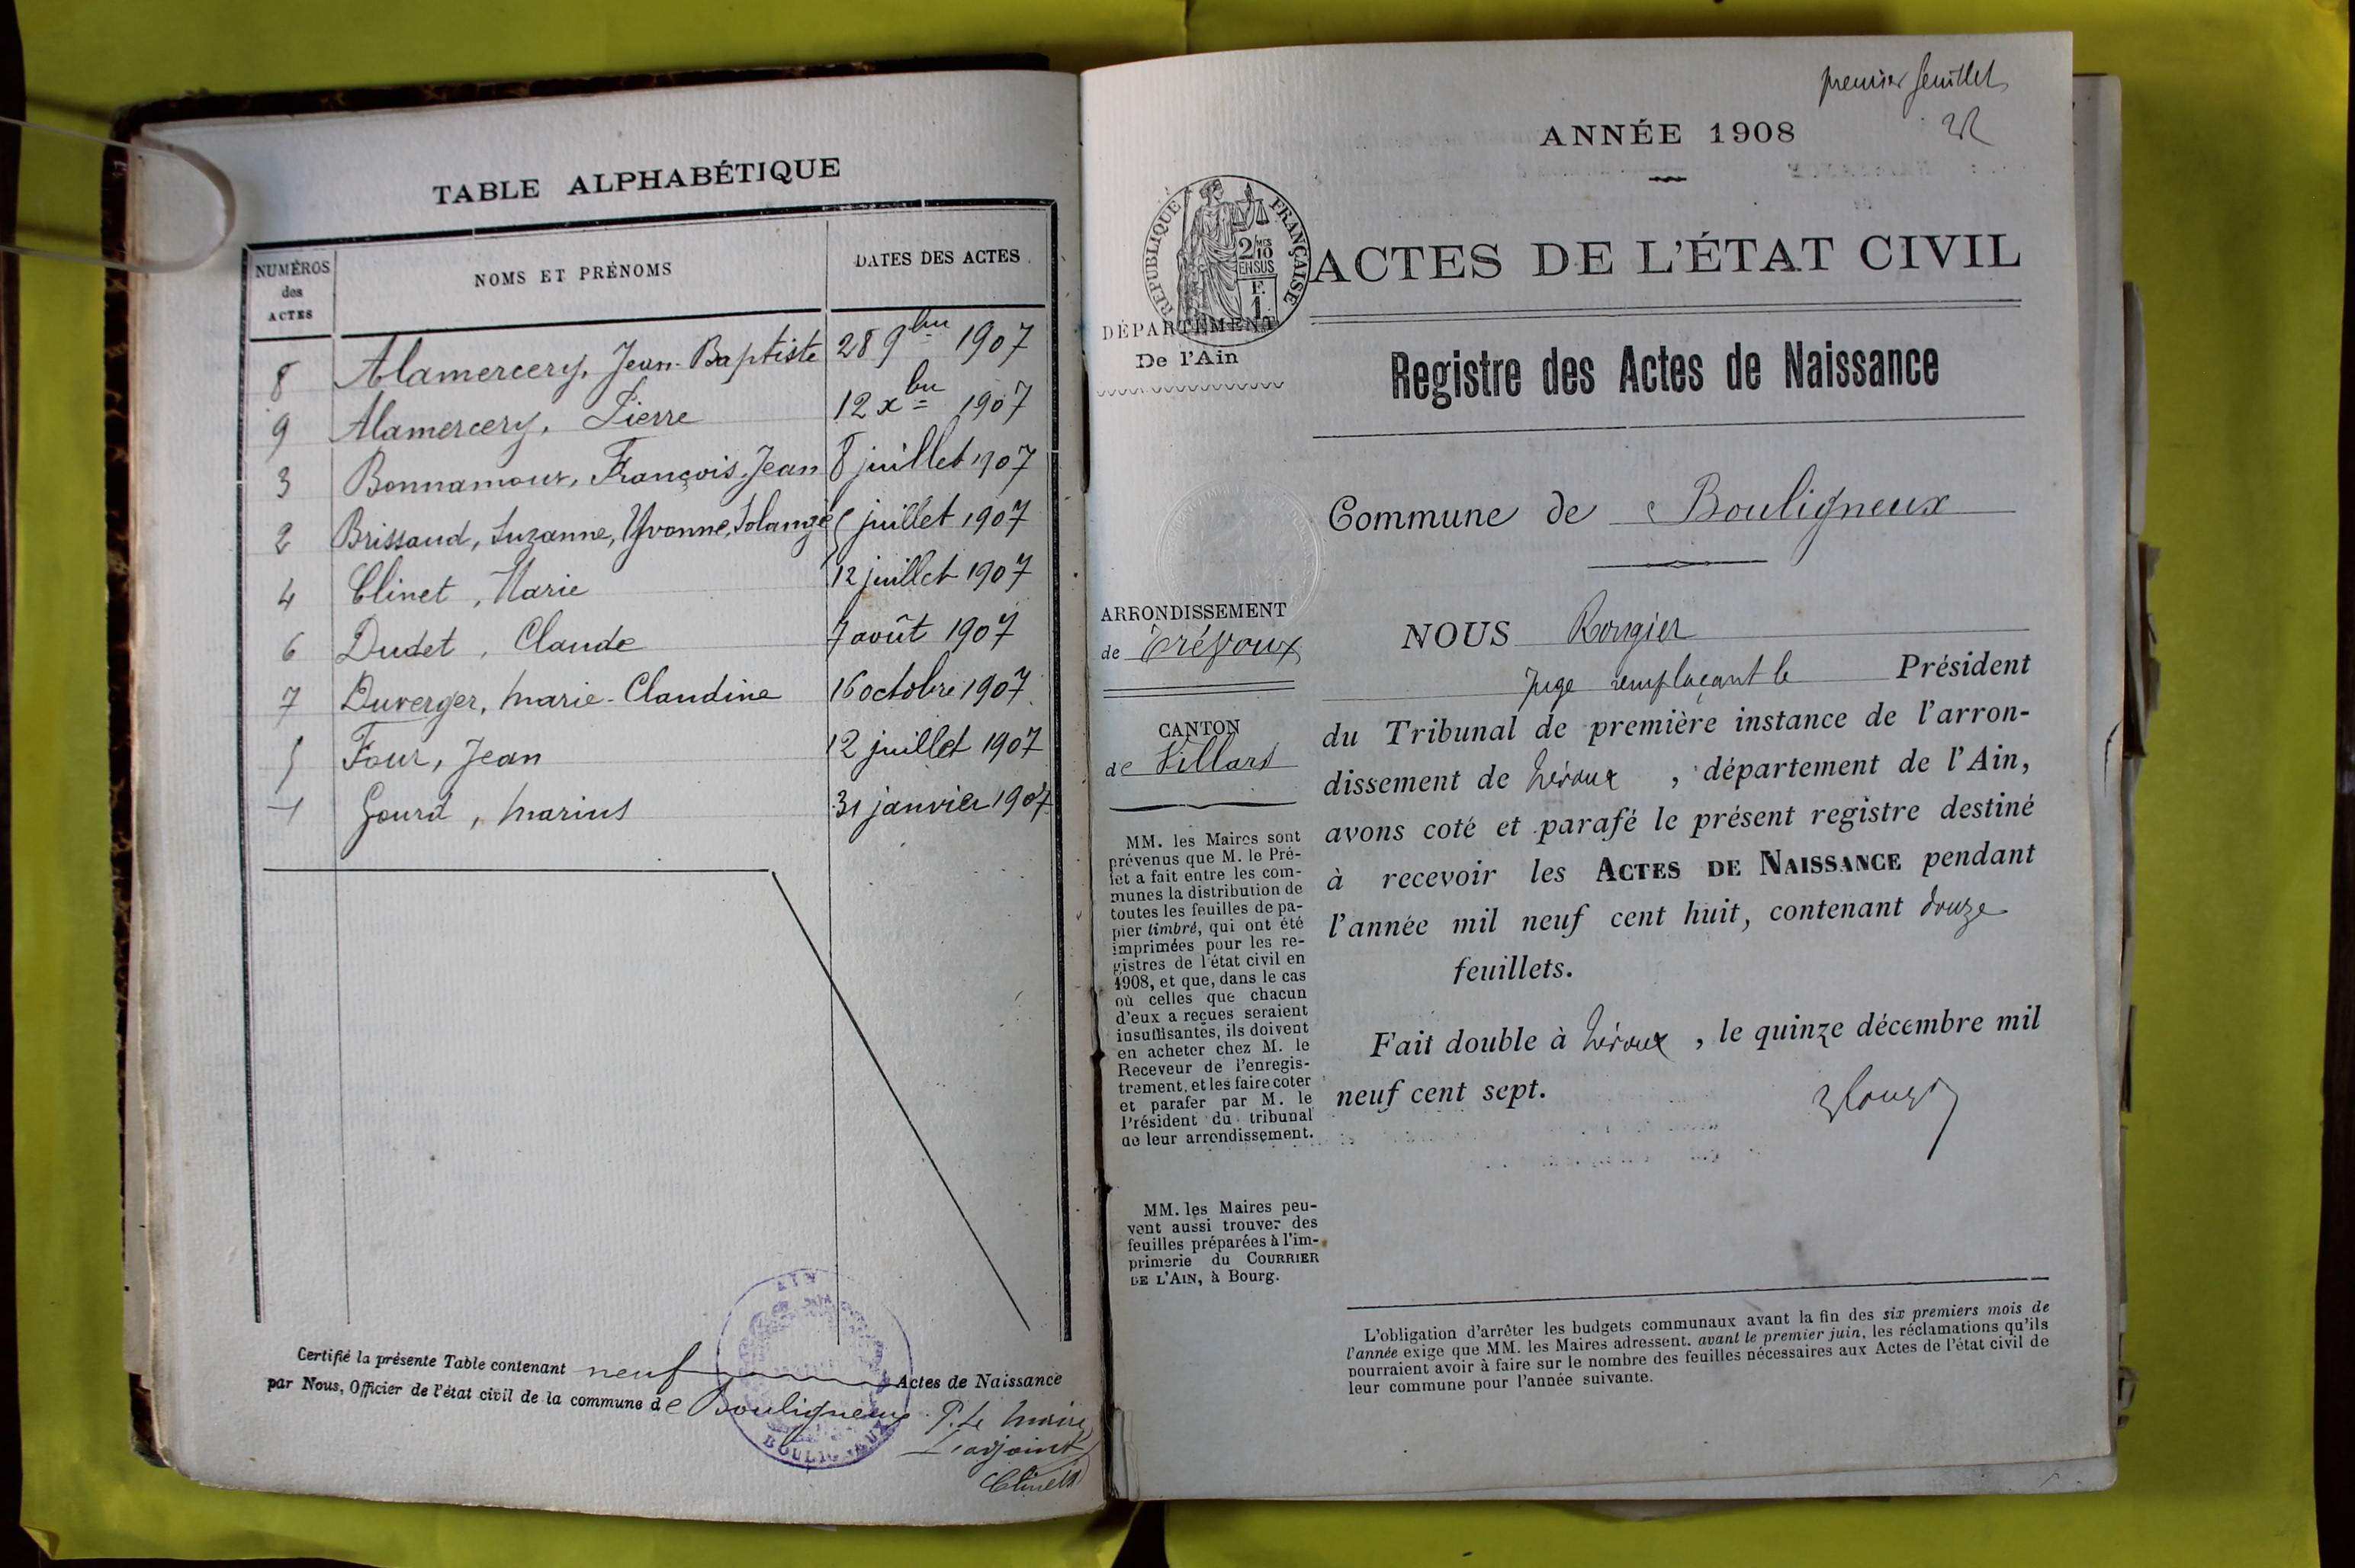 TABLE ALPHABÉTIQUE
NUMÉROS des ACTES NOMS ET PRÉNOMS DATES DES ACTES
8 Alamercery, Jean-Baptiste 28 9bre 1907
9 Alamercery, Pierre 12 xbre 1907
3 Bonnamour, François Jean 8 juillet 1907
2 Brissaud, Suzanne, Yvonne, Solange 5 juillet 1907
4 Clinet, Marie 12 juillet 1907
6 Dudet, Claude 7 août 1907
7 Duverger, Marie-Claudine 16 octobre 1907
5 Four, Jean 12 juillet 1907
1 Gourd, Marius 31 janvier 1907
Certifié la présente Table contenant neuf Actes de Naissance
par Nous, Officier de l'état civil de la commune de Bouligneux
P. Le Maire
L'adjoint
Clinet
AIN
BOULIGNEUX
premier feuillet
ANNÉE 1908
RÉPUBLIQUE FRANÇAISE
2/MES
10
EN SUS
F.
1.
ACTES DE L'ÉTAT CIVIL
DÉPARTEMENT
De l'Ain
Registre des Actes de Naissance
Commune de Bouligneux
ARRONDISSEMENT
de Trévoux
CANTON
de Villars
MM. les Maires sont
prévenus que M. le Pré-
fet a fait entre les com-
munes la distribution de
toutes les feuilles de pa-
pier timbré, qui ont été
imprimées pour les re-
gistres de l'état civil en
1908, et que, dans le cas
où celles que chacun
d'eux a reçues seraient
insuffisantes, ils doivent
en acheter chez M. le
Receveur de l'enregis-
trement, et les faire coter
et parafer par M. le
Président du tribunal
de leur arrondissement.
MM. les Maires peu-
vent aussi trouver des
feuilles préparées à l'im-
primerie du COURRIER
DE L'AIN, à Bourg.
NOUS Rougier
Juge remplaçant le Président
du Tribunal de première instance de l'arron-
dissement de Trévoux, département de l'Ain,
avons coté et parafé le présent registre destiné
à recevoir les ACTES DE NAISSANCE pendant
l'année mil neuf cent huit, contenant douze
feuillets.
Fait double à Trévoux, le quinze décembre mil
neuf cent sept.
L'obligation d'arrêter les budgets communaux avant la fin des six premiers mois de
l'année exige que MM. les Maires adressent, avant le premier juin, les réclamations qu'ils
pourraient avoir à faire sur le nombre des feuilles nécessaires aux Actes de l'état civil de
leur commune pour l'année suivante.